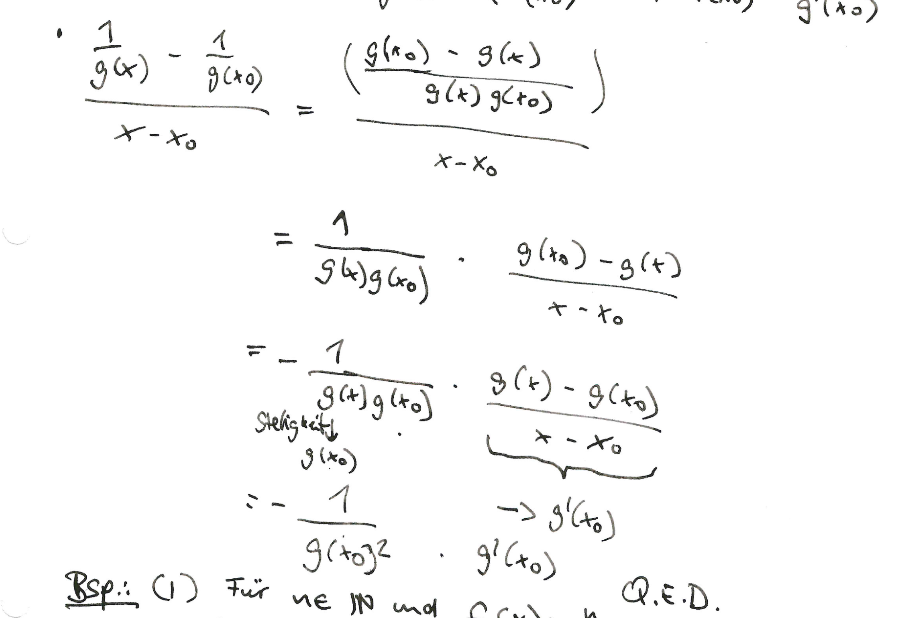 g'(x₀)
• (1/g(x) - 1/g(x₀)) / (x - x₀) = ((g(x₀) - g(x)) / (g(x) g(x₀))) / (x - x₀)
= 1 / (g(x) g(x₀)) · (g(x₀) - g(x)) / (x - x₀)
= - 1 / (g(x) g(x₀)) · (g(x) - g(x₀)) / (x - x₀)
Stetigkeit ↓
g(x₀)
-> g'(x₀)
= - 1 / g(x₀)² · g'(x₀)
Q.E.D.
Bsp.: (1) Für n ∈ ℕ und